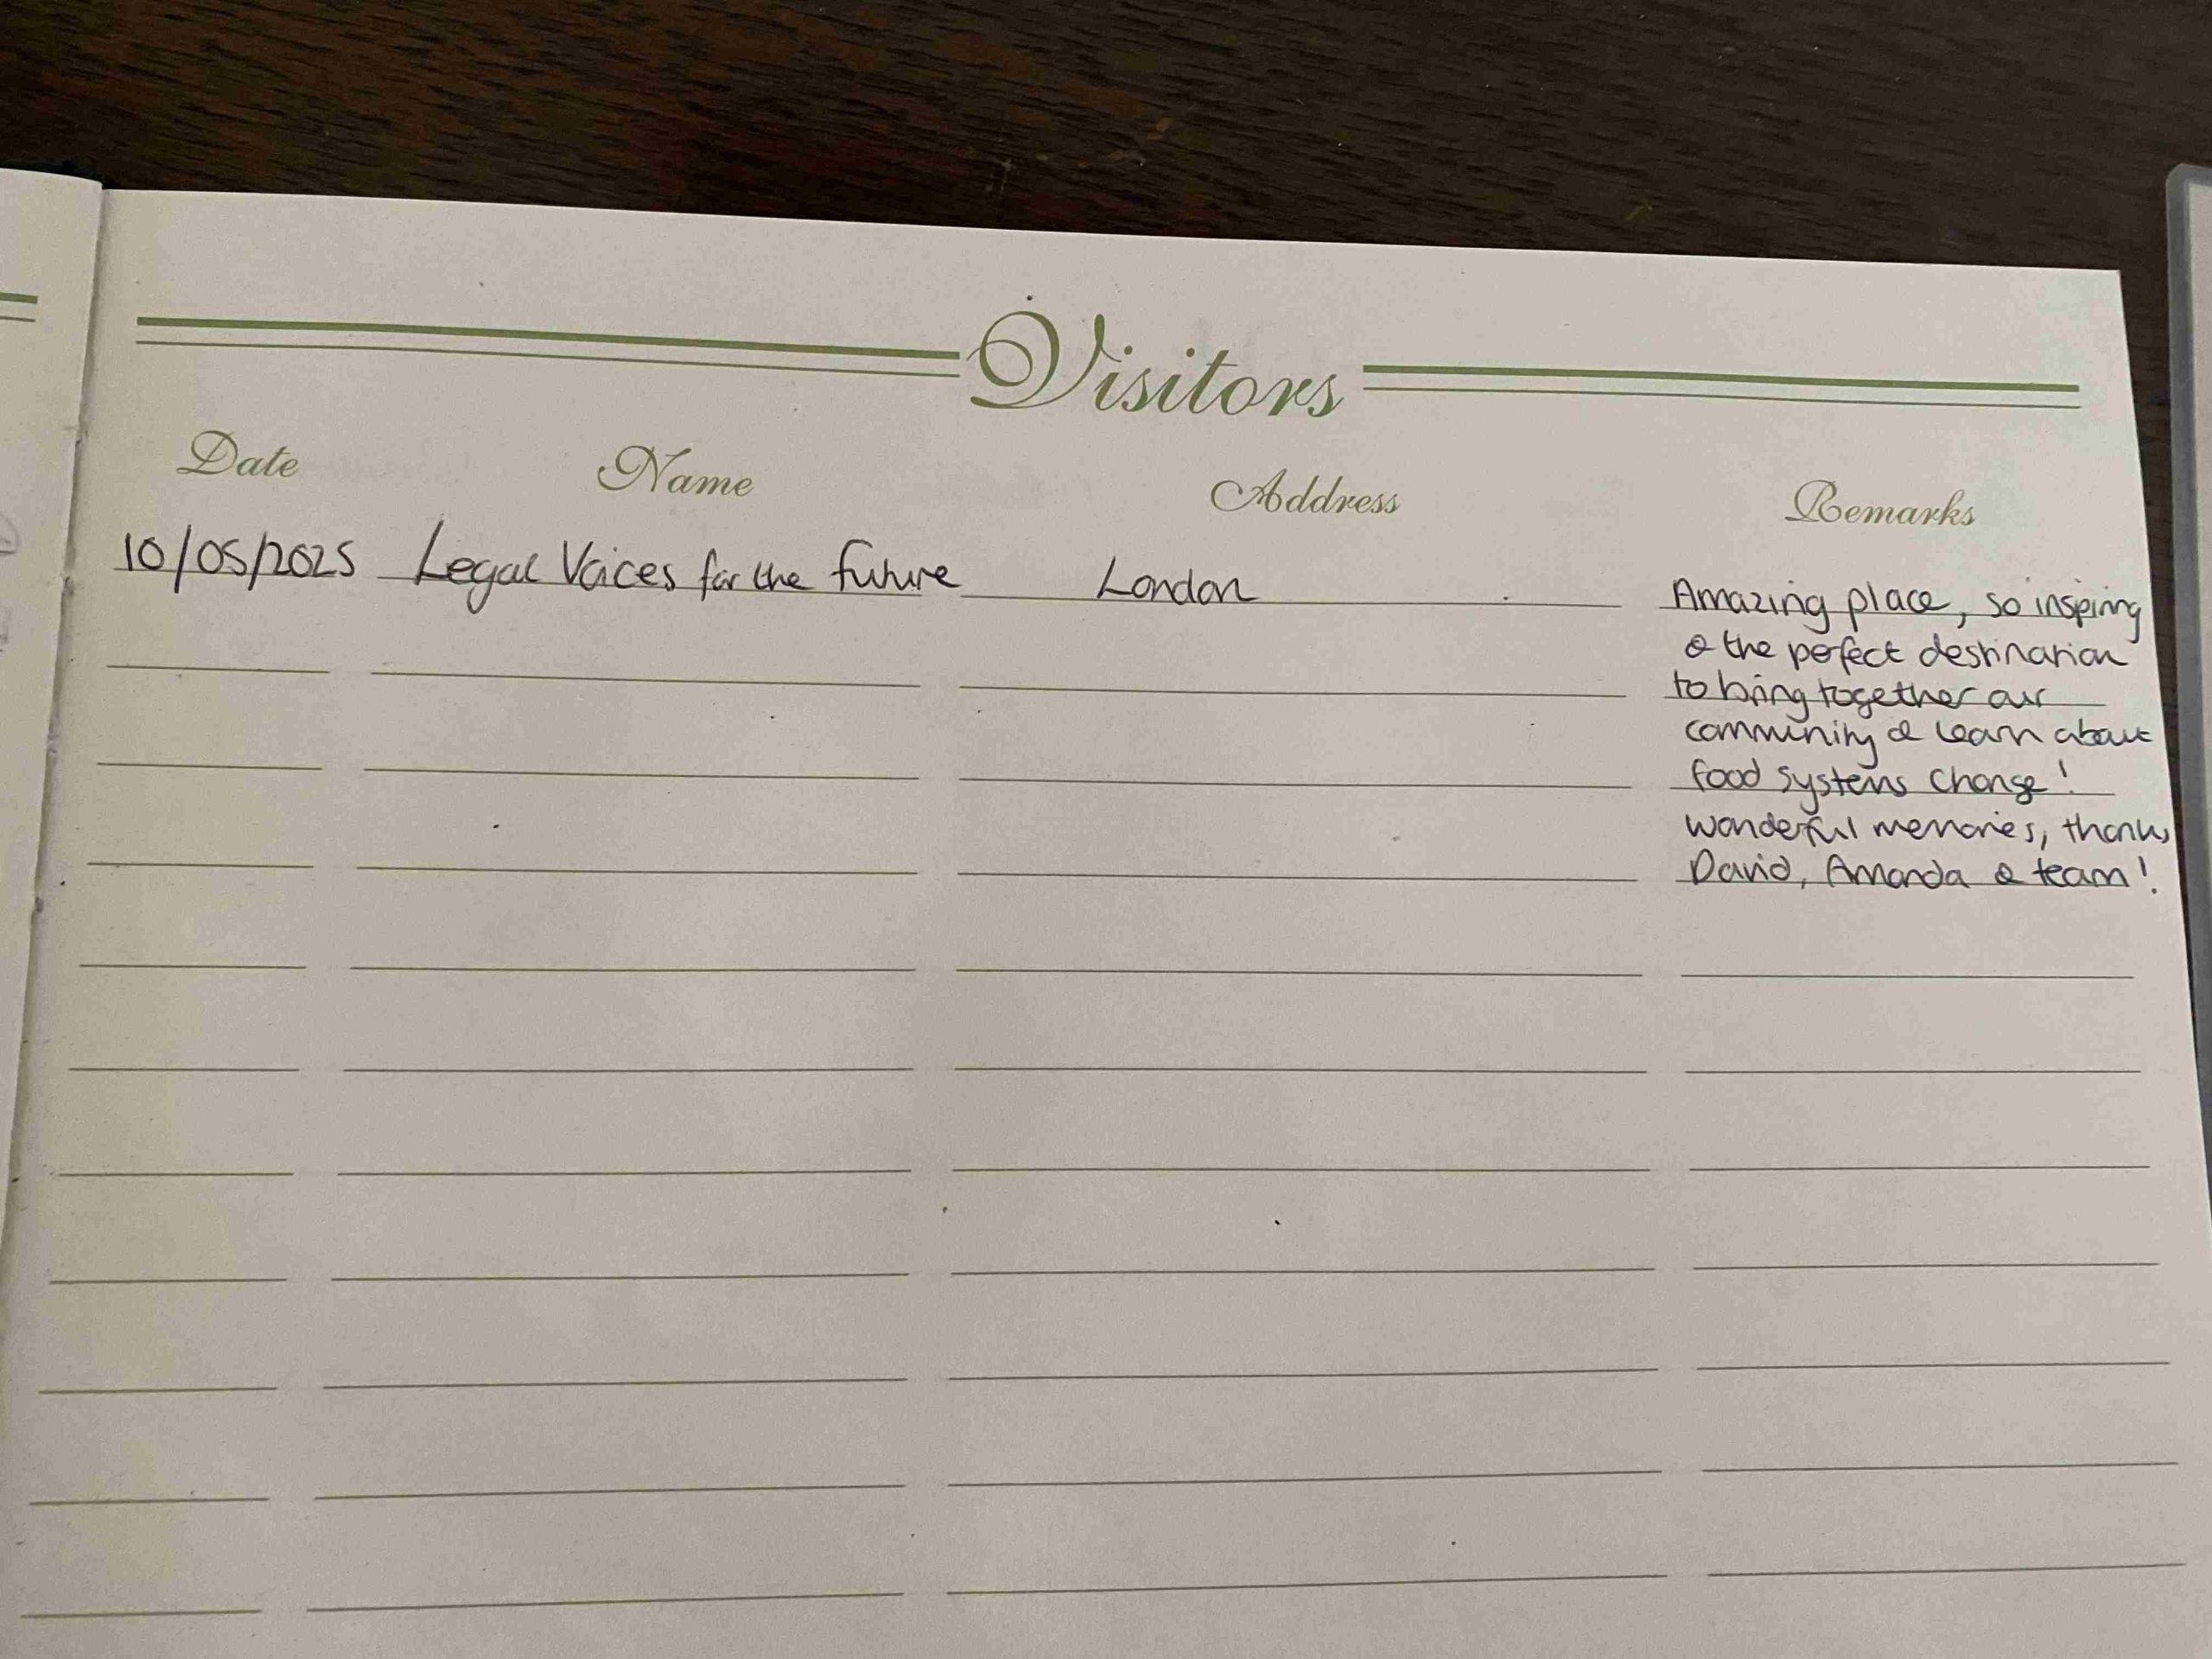 Visitors
Date Name Address Remarks
10/05/2025 Legal Voices for the future London Amazing place, so inspiring
& the perfect destination
to bring together our
community & learn about
food systems change!
wonderful memories, thanks
David, Amanda & team!